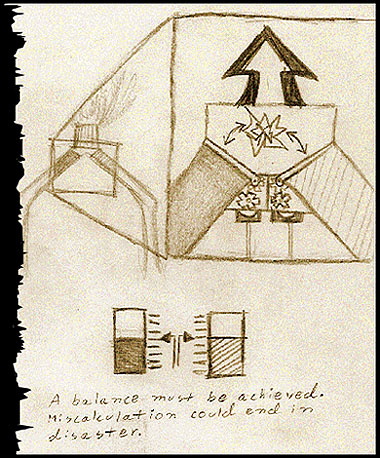 A balance must be achieved.
Miscalculation could end in
disaster.